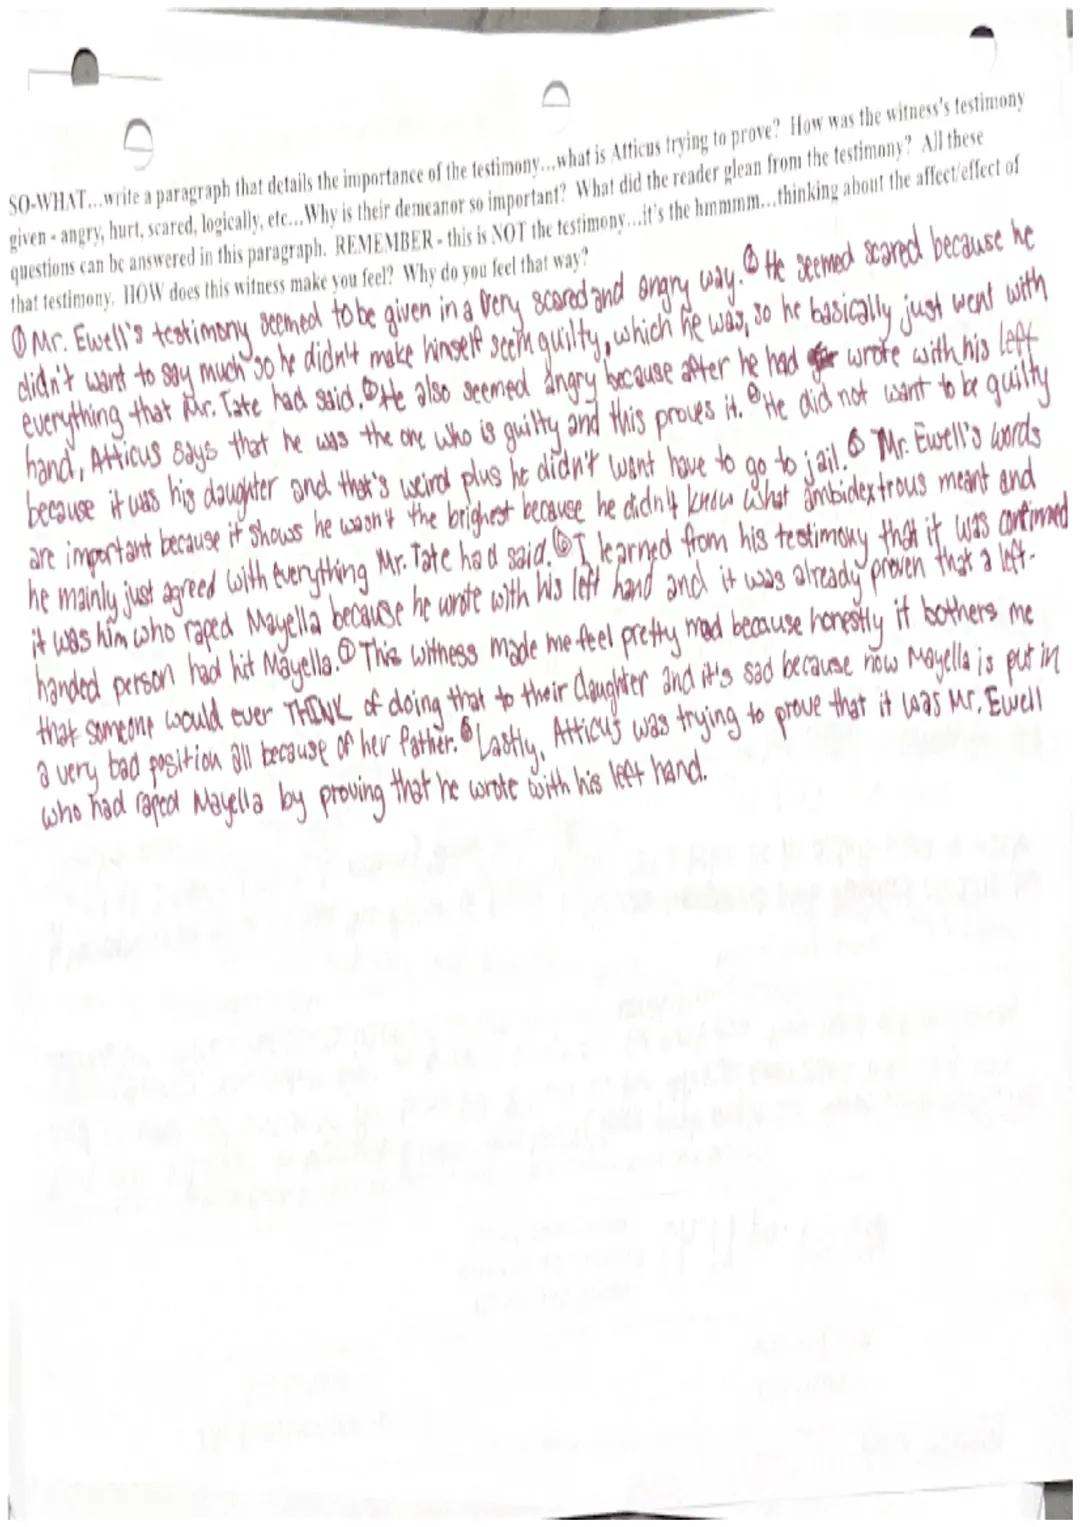 SO-WHAT...write a paragraph that details the importance of the testimony...what is Atticus trying to prove? How was the witness's testimony
given - angry, hurt, scared, logically, etc...Why is their demeanor so important? What did the reader glean from the testimony? All these
questions can be answered in this paragraph. REMEMBER - this is NOT the testimony...it's the hmmmm...thinking about the affect/effect of
that testimony. HOW does this witness make you feel? Why do you feel that way?
① Mr. Ewell's testimony seemed to be given in a very scared and angry way. ② He seemed scared because he
didn't want to say much so he didn't make himself seem guilty, which he was, so he basically just went with
everything that Mr. Tate had said. ③ He also seemed angry because after he had wrote with his left
hand, Atticus says that he was the one who is guilty and this proves it. ④ He did not want to be guilty
because it was his daughter and that's weird plus he didn't want have to go to jail. ⑤ Mr. Ewell's words
are important because it shows he wasn't the brightest because he didn't know what ambidextrous meant and
he mainly just agreed with everything Mr. Tate had said. ⑥ I learned from his testimony that it was confirmed
it was him who raped Mayella because he wrote with his left hand and it was already proven that a left-
handed person had hit Mayella. ⑦ This witness made me feel pretty mad because honestly it bothers me
that someone would ever THINK of doing that to their daughter and it's sad because now Mayella is put in
a very bad position all because of her father. ⑧ Lastly, Atticus was trying to prove that it was Mr. Ewell
who had raped Mayella by proving that he wrote with his left hand.